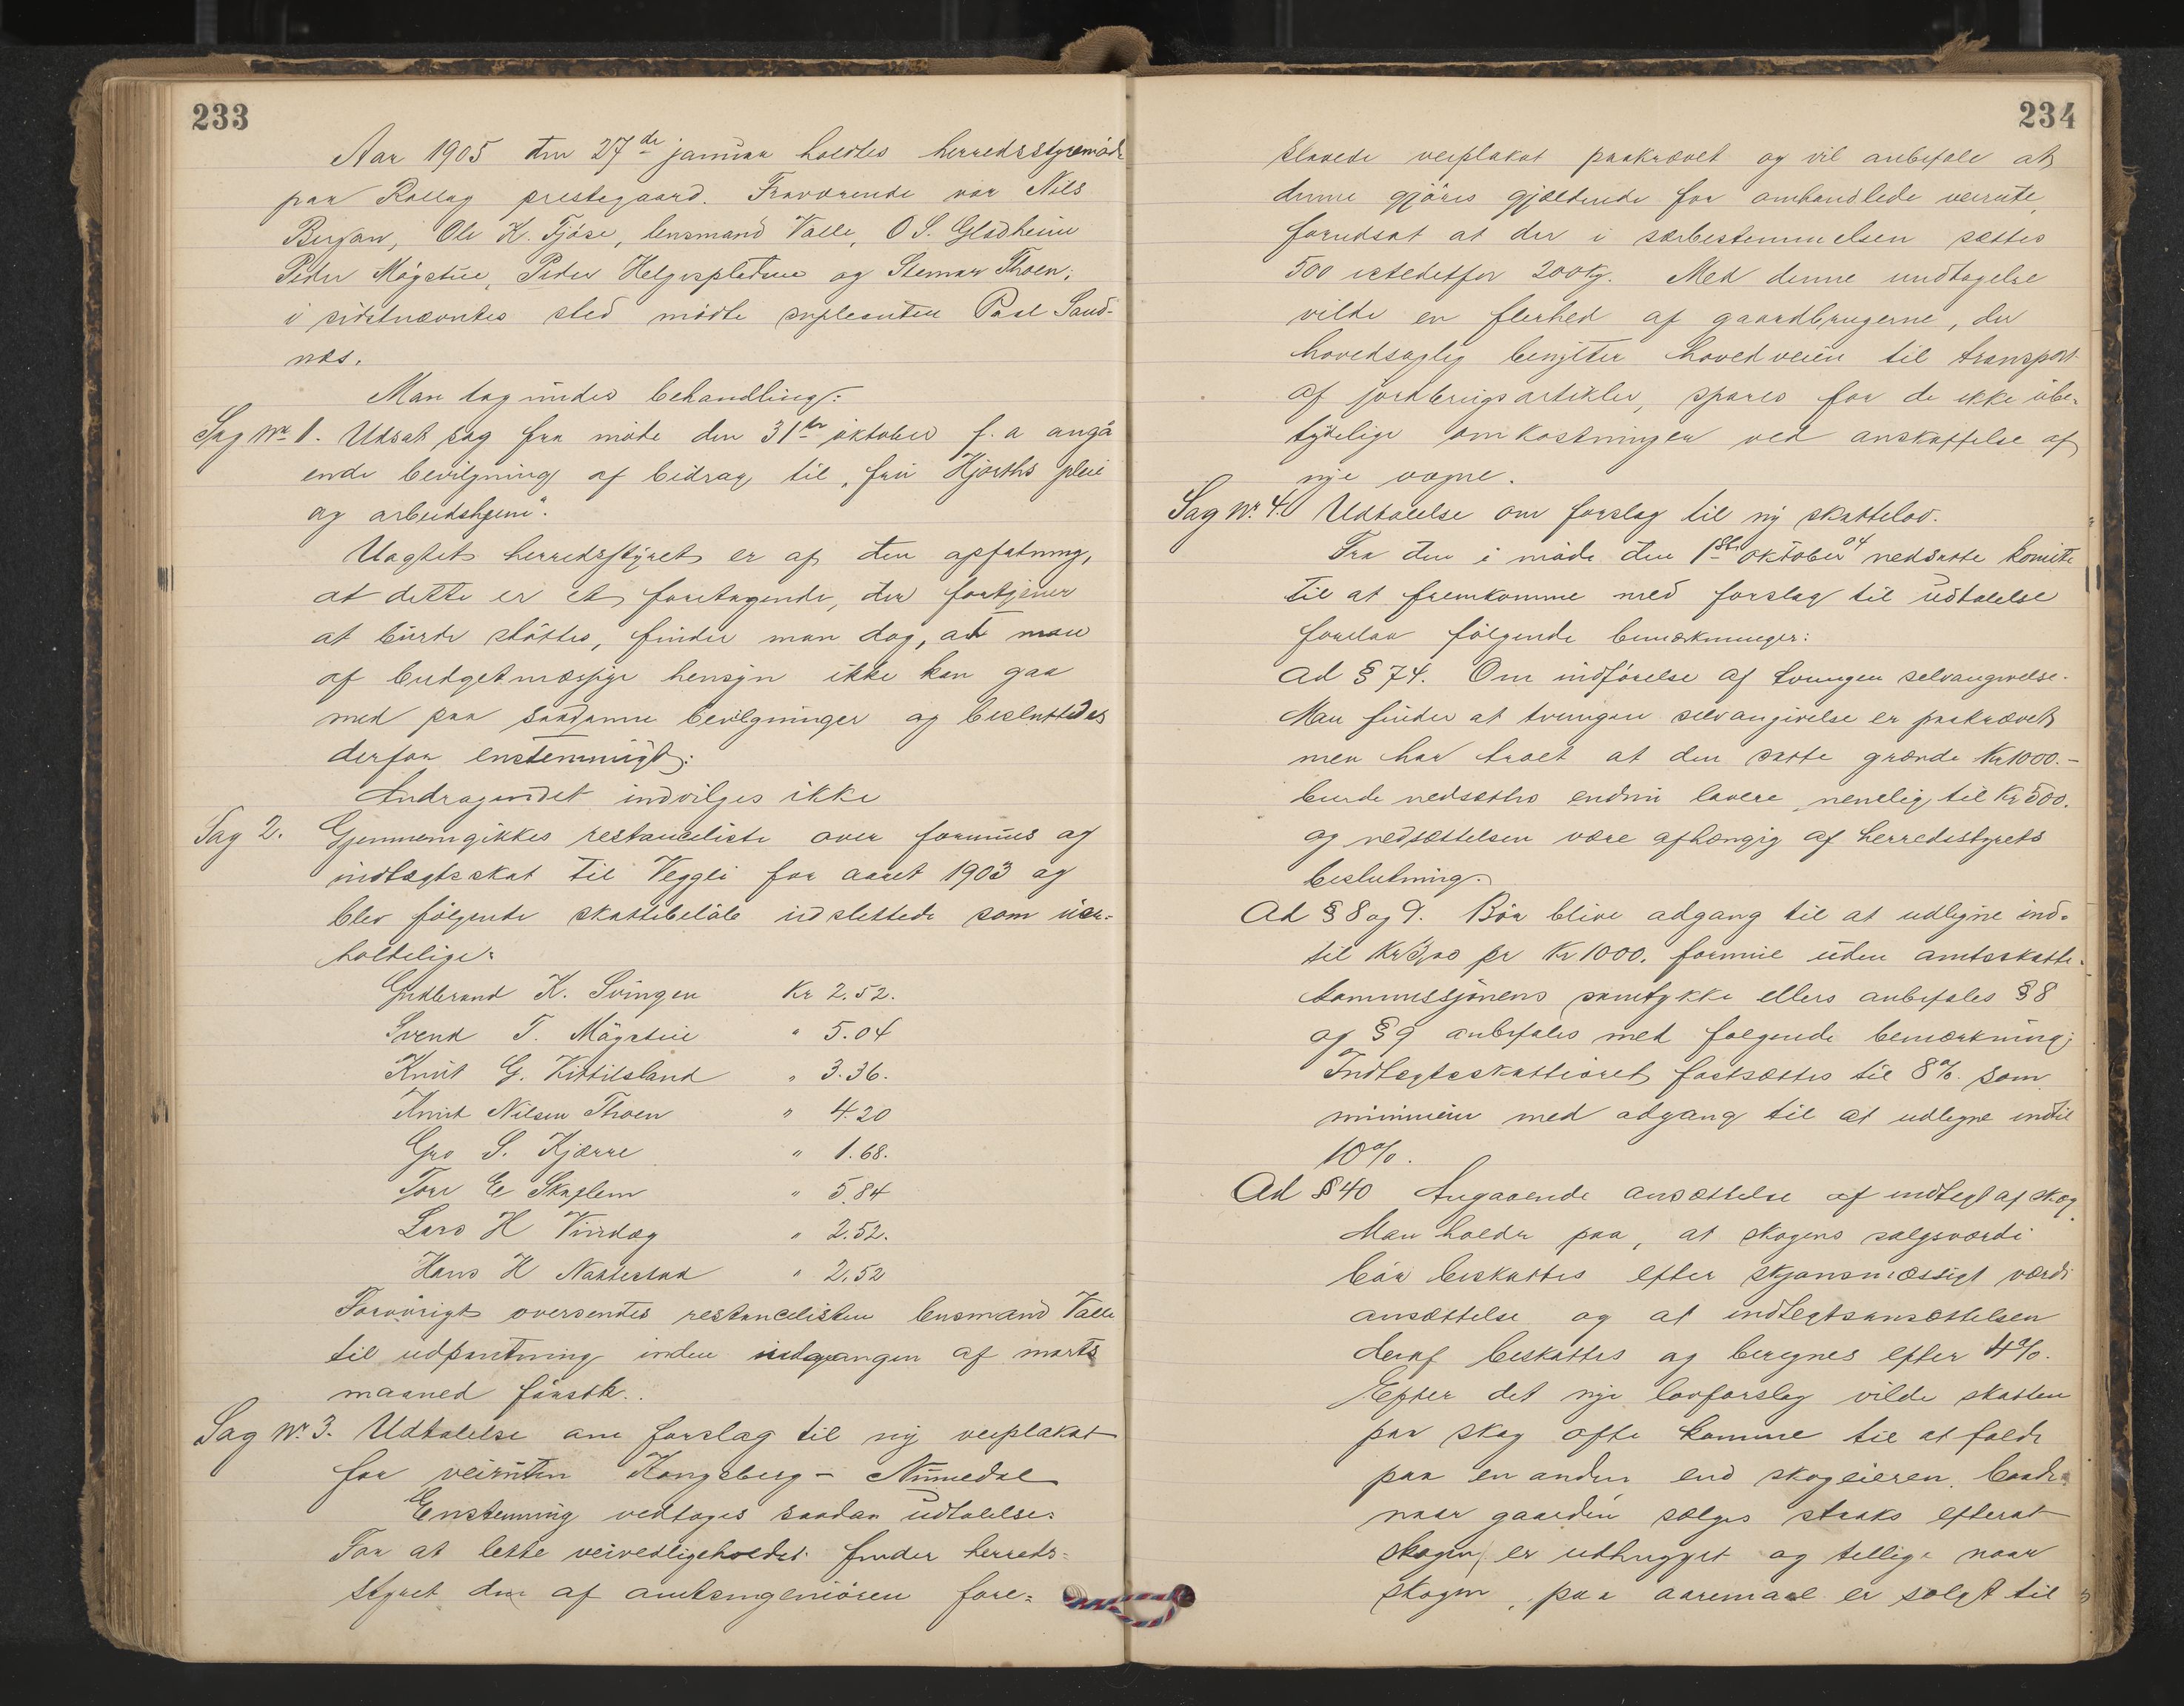 233
Aar 1905 den 27de januar holdtes herredsstyremøde
paa Rollag prestegaard. Fraværende var Nils
Bergan, Ole K. Fjöse, lensmand Valle, O S. Gladheim
Peder Mögstue, Peder Helgesplatene og Stenar Thoen;
i sidstnævntes sted mödte supleanten Paal Sand-
næs.
Man tog under behandling:
Sag Nr 1. Udsat sag fra møde den 31te oktober f. a angå
ende bevilgning af bidrag til „fru Hjorths pleie
og arbeidshjem“.
Uagtet herredsstyret er af den opfatning,
at dette er et foretagende, der fortjener
at burde støttes, finder man dog, at man
af budgetmæssige hensyn ikke kan gaa
med paa saadanne bevilgninger og besluttedes
derfor enstemmigt:
Andragendet indvilges ikke
Sag 2. Gjennemgikkes restanceliste over formues og
indtægtsskat til Veggli for aaret 1903 og
blev fölgende skattebelöb udslettede som uer-
holdelige:
Gudbrand K. Svingen Kr 2.52.
Svend T. Mögstue " 5.04
Knut G. Kittilsland " 3.36.
Knut Nilsen Thoen " 4.20
Gro S. Kjærre " 1.68.
Tore E Skaplem " 5.84
Lars H Vindeg " 2.52.
Hans H Nattestad " 2.52
Forövrigt oversendtes restancelisten lensmand Valle
til udpantning inden udgangen af marts
maaned förstk..
Sag Nr. 3. Udtalelse om forslag til ny veiplakat
for veiruten Kongsberg – Numedal
Enstemmig vedtoges saadan udtalelse:
For at lette veivedligeholdet finder herreds-
styret den af amtsingeniören fore-
234
slaaede veiplakat paakrævet og vil anbefale at
denne gjöres gjældende for omhandlede veirute,
forudsat at der i særbestemmelsen sættes
500 istedetfor 200 kg. Med denne undtagelse
vilde en flerhed af gaardbrugerne, der
hovedsaglig benytter hovedveien til transport
af jordbrugsartikler, spares for de ikke ube-
tydelige omkostninger ved anskaffelse af
nye vogne.
Sag Nr. 4. Udtalelse om forslag til ny skattelov.
Fra den i møde den 1ste oktober 04 nedsatte komite
til at fremkomme med forslag til udtalelse
forelaa fölgende bemærkninger:
Ad § 74. Om indförelse af tvungen selvangivelse.
Man finder at tvungen selvangivelse er paakrævet
men har troet at den satte grænde Kr 1000.–
burde nedsættes endnu lavere, nemelig til Kr 500.
og nedsættelsen være afhængig af herredsstyrets
beslutning.
Ad § 8 og 9. Bör blive adgang til at udligne ind-
til Kr 3,00 pr Kr 1000. formue uden amtsskatte-
kommissjonens samtykke ellers anbefales § 8
og § 9 anbefales med følgende bemærkning;
Indtægtsskattöret fastsættes til 8 %. som
minimum med adgang til at udligne indtil
10 %.
Ad § 40 Angaaende ansættelse af indtegt af skog.
Man holder paa, at skogens salgsværdi
bör beskattes efter skjønsmæssigt værdi
ansættelse og at indtegtsansættelsen
deraf beskattes og beregnes efter 4 %.
Efter det nye lovforslag vilde skatten
paa skog ofte komme til at falde
paa en anden end skogeieren, baade
naar gaarden sælges straks efterat
skogen er udhugget og tillige naar
skogen, paa aaremaal er solgt til